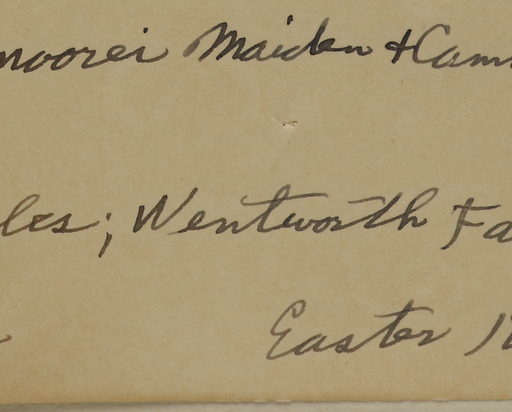 moorei Maiden & Cam
les; Wentworth Fa
Easter 1